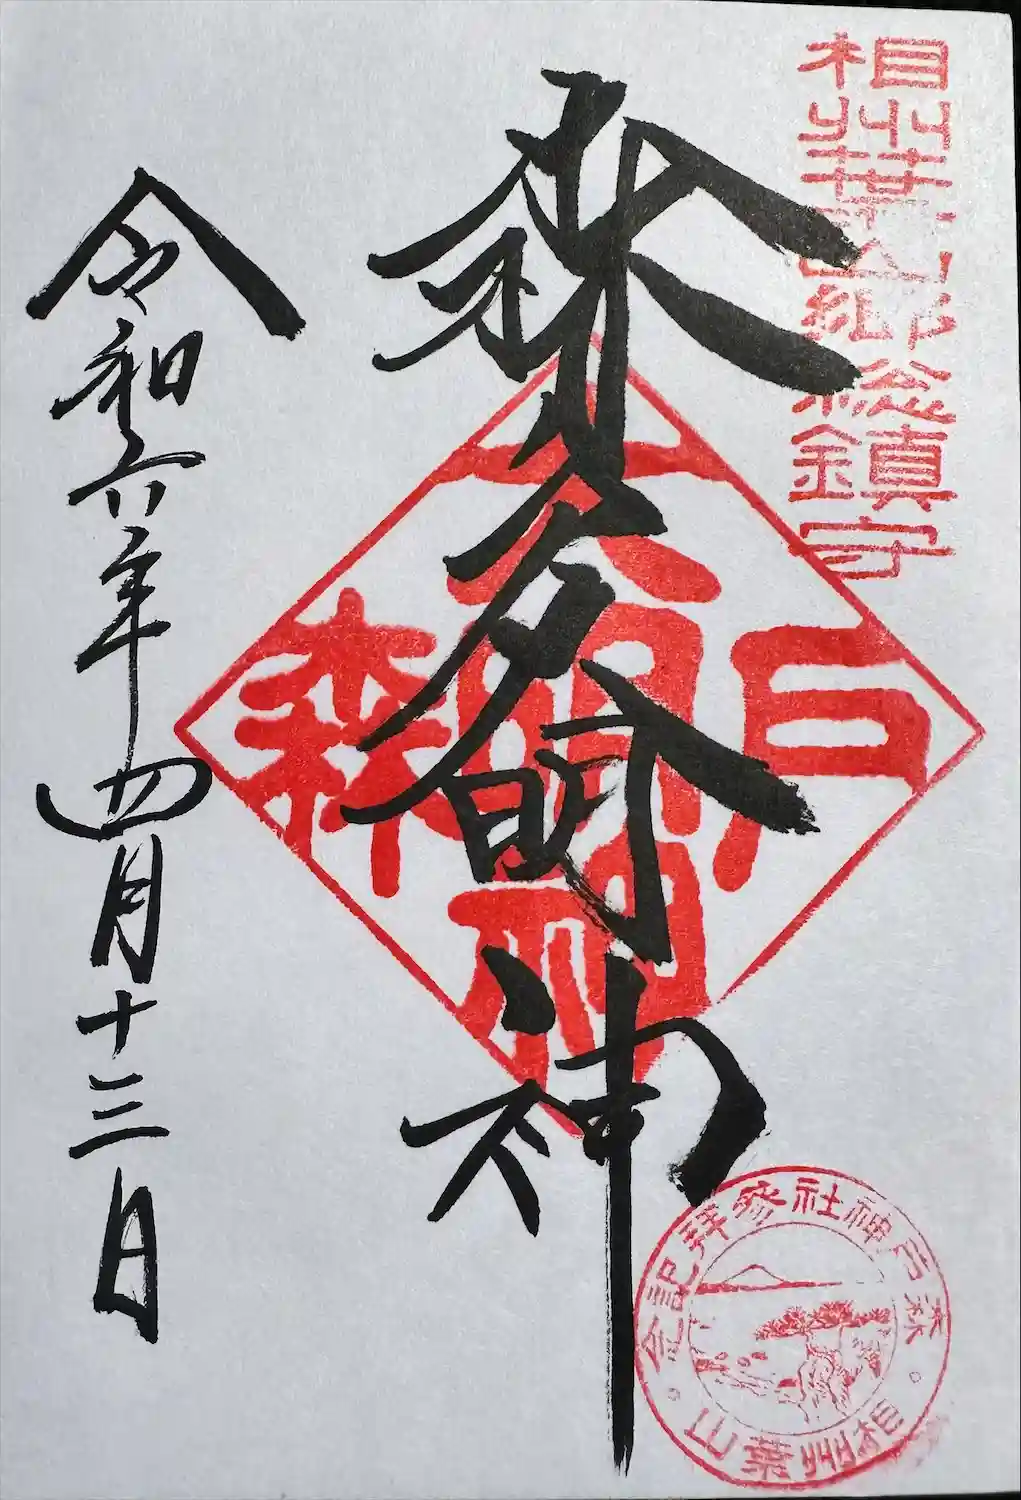 相州葉山郷総鎮守
森戸大明神
森戸大明神
令和六年四月十三日
森戸神社参拝記念
相州葉山